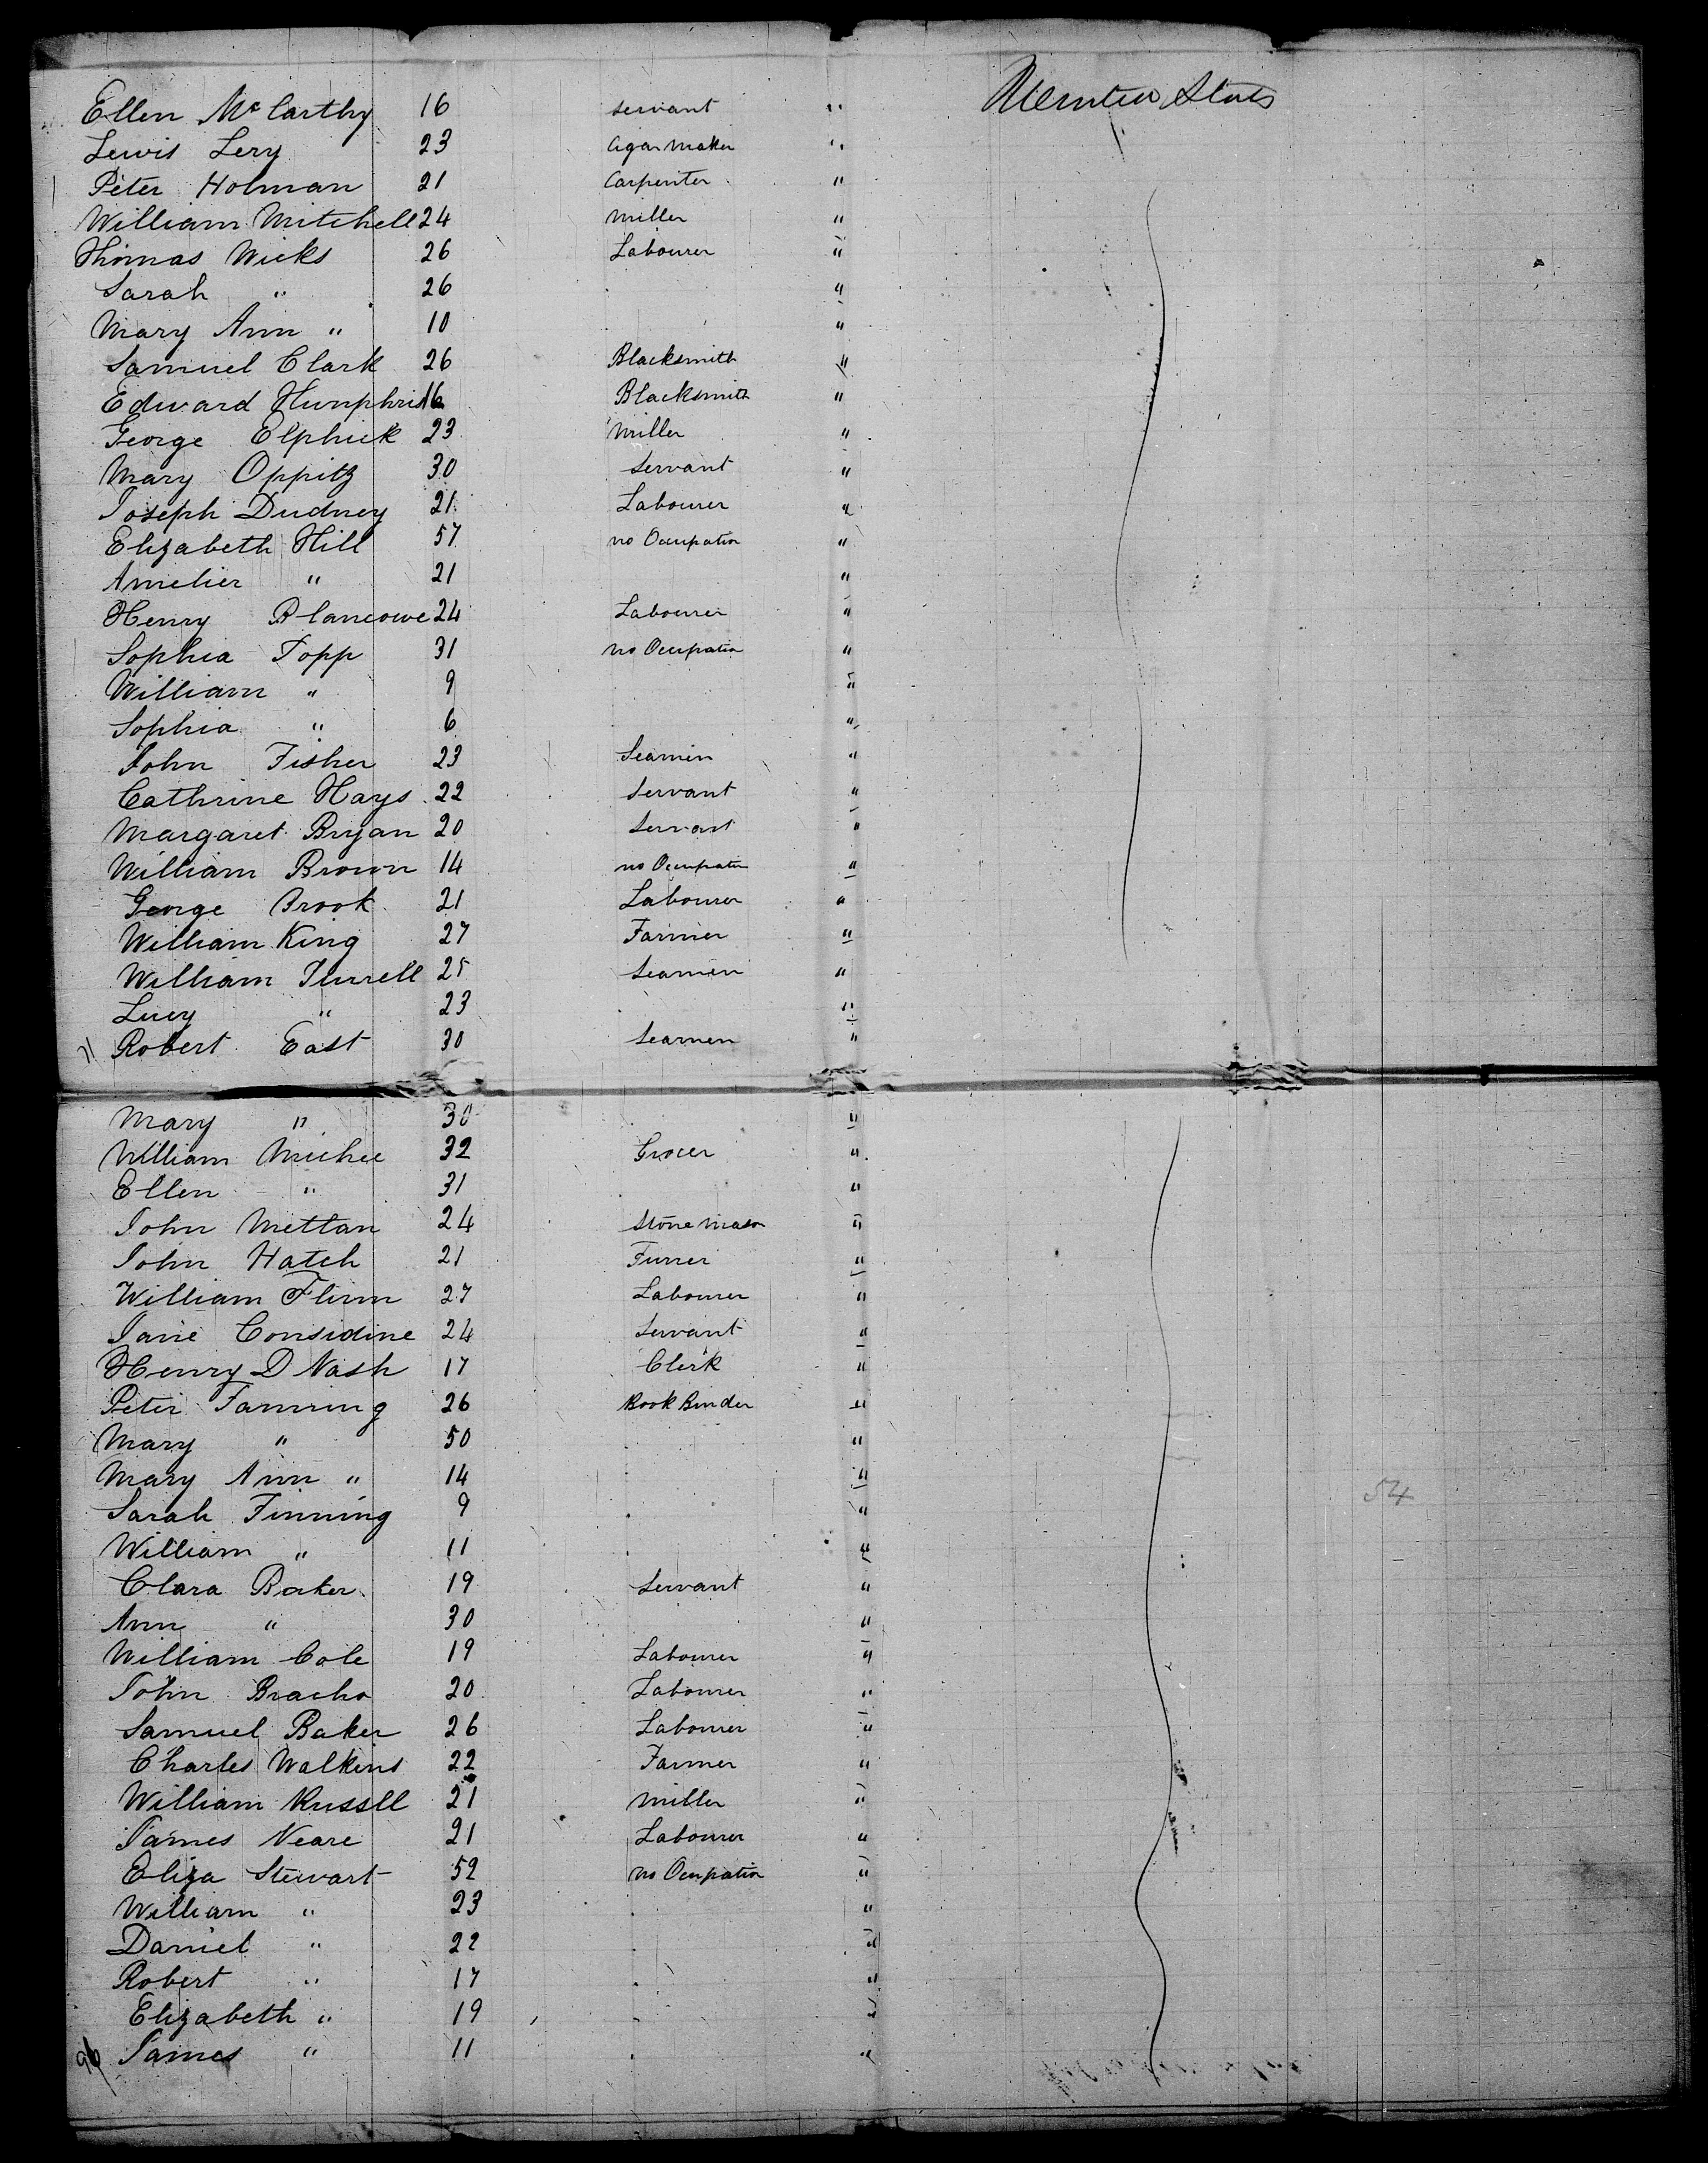 Ellen McCarthy 16 servant " United States
Lewis Levy 23 Cigar Maker "
Peter Holman 21 Carpenter "
William Mitchell 24 Miller "
Thomas Wicks 26 Labourer "
Sarah " 26 "
Mary Ann " 10 "
Samuel Clark 26 Blacksmith "
Edward Humphris 16 Blacksmith "
George Elphick 23 Miller "
Mary Oppitz 30 Servant "
Joseph Dudney 21 Labourer "
Elizabeth Hill 57 no Occupation "
Amelier " 21 "
Henry Blancowe 24 Labourer "
Sophia Topp 31 no Ocupation "
William " 9 "
Sophia " 6 "
John Fisher 23 Seamen "
Cathrine Hays 22 Servant "
Margaret Bryan 20 Servant "
William Brown 14 no Occupation "
George Brook 21 Labourer "
William King 27 Farmer "
William Turrell 25 Seamen "
Lucy " 23 "
11 Robert East 30 Seamen "
Mary " 30 "
William Michee 32 Grocer "
Ellen " 31 "
John Mettan 24 Stone Mason "
John Hatch 21 Furrer "
William Flinn 27 Labourer "
Jane Considine 24 Servant "
Henry D Nash 17 Clerk "
Peter Fanning 26 Book Binder "
Mary " 50 "
Mary Ann " 14 " 54
Sarah Finning 9 "
William " 11 "
Clara Baker 19 Servant "
Ann " 30 "
William Cole 19 Labourer "
John Bracho 20 Labourer "
Samuel Baker 26 Labourer "
Charles Walkins 22 Farmer "
William Russll 21 Miller "
James Neare 21 Labourer "
Eliza Stewart 52 no Ocupation "
William " 23 "
Daniel " 22 "
Robert " 17 "
Elizabeth " 19 "
James " 11 "